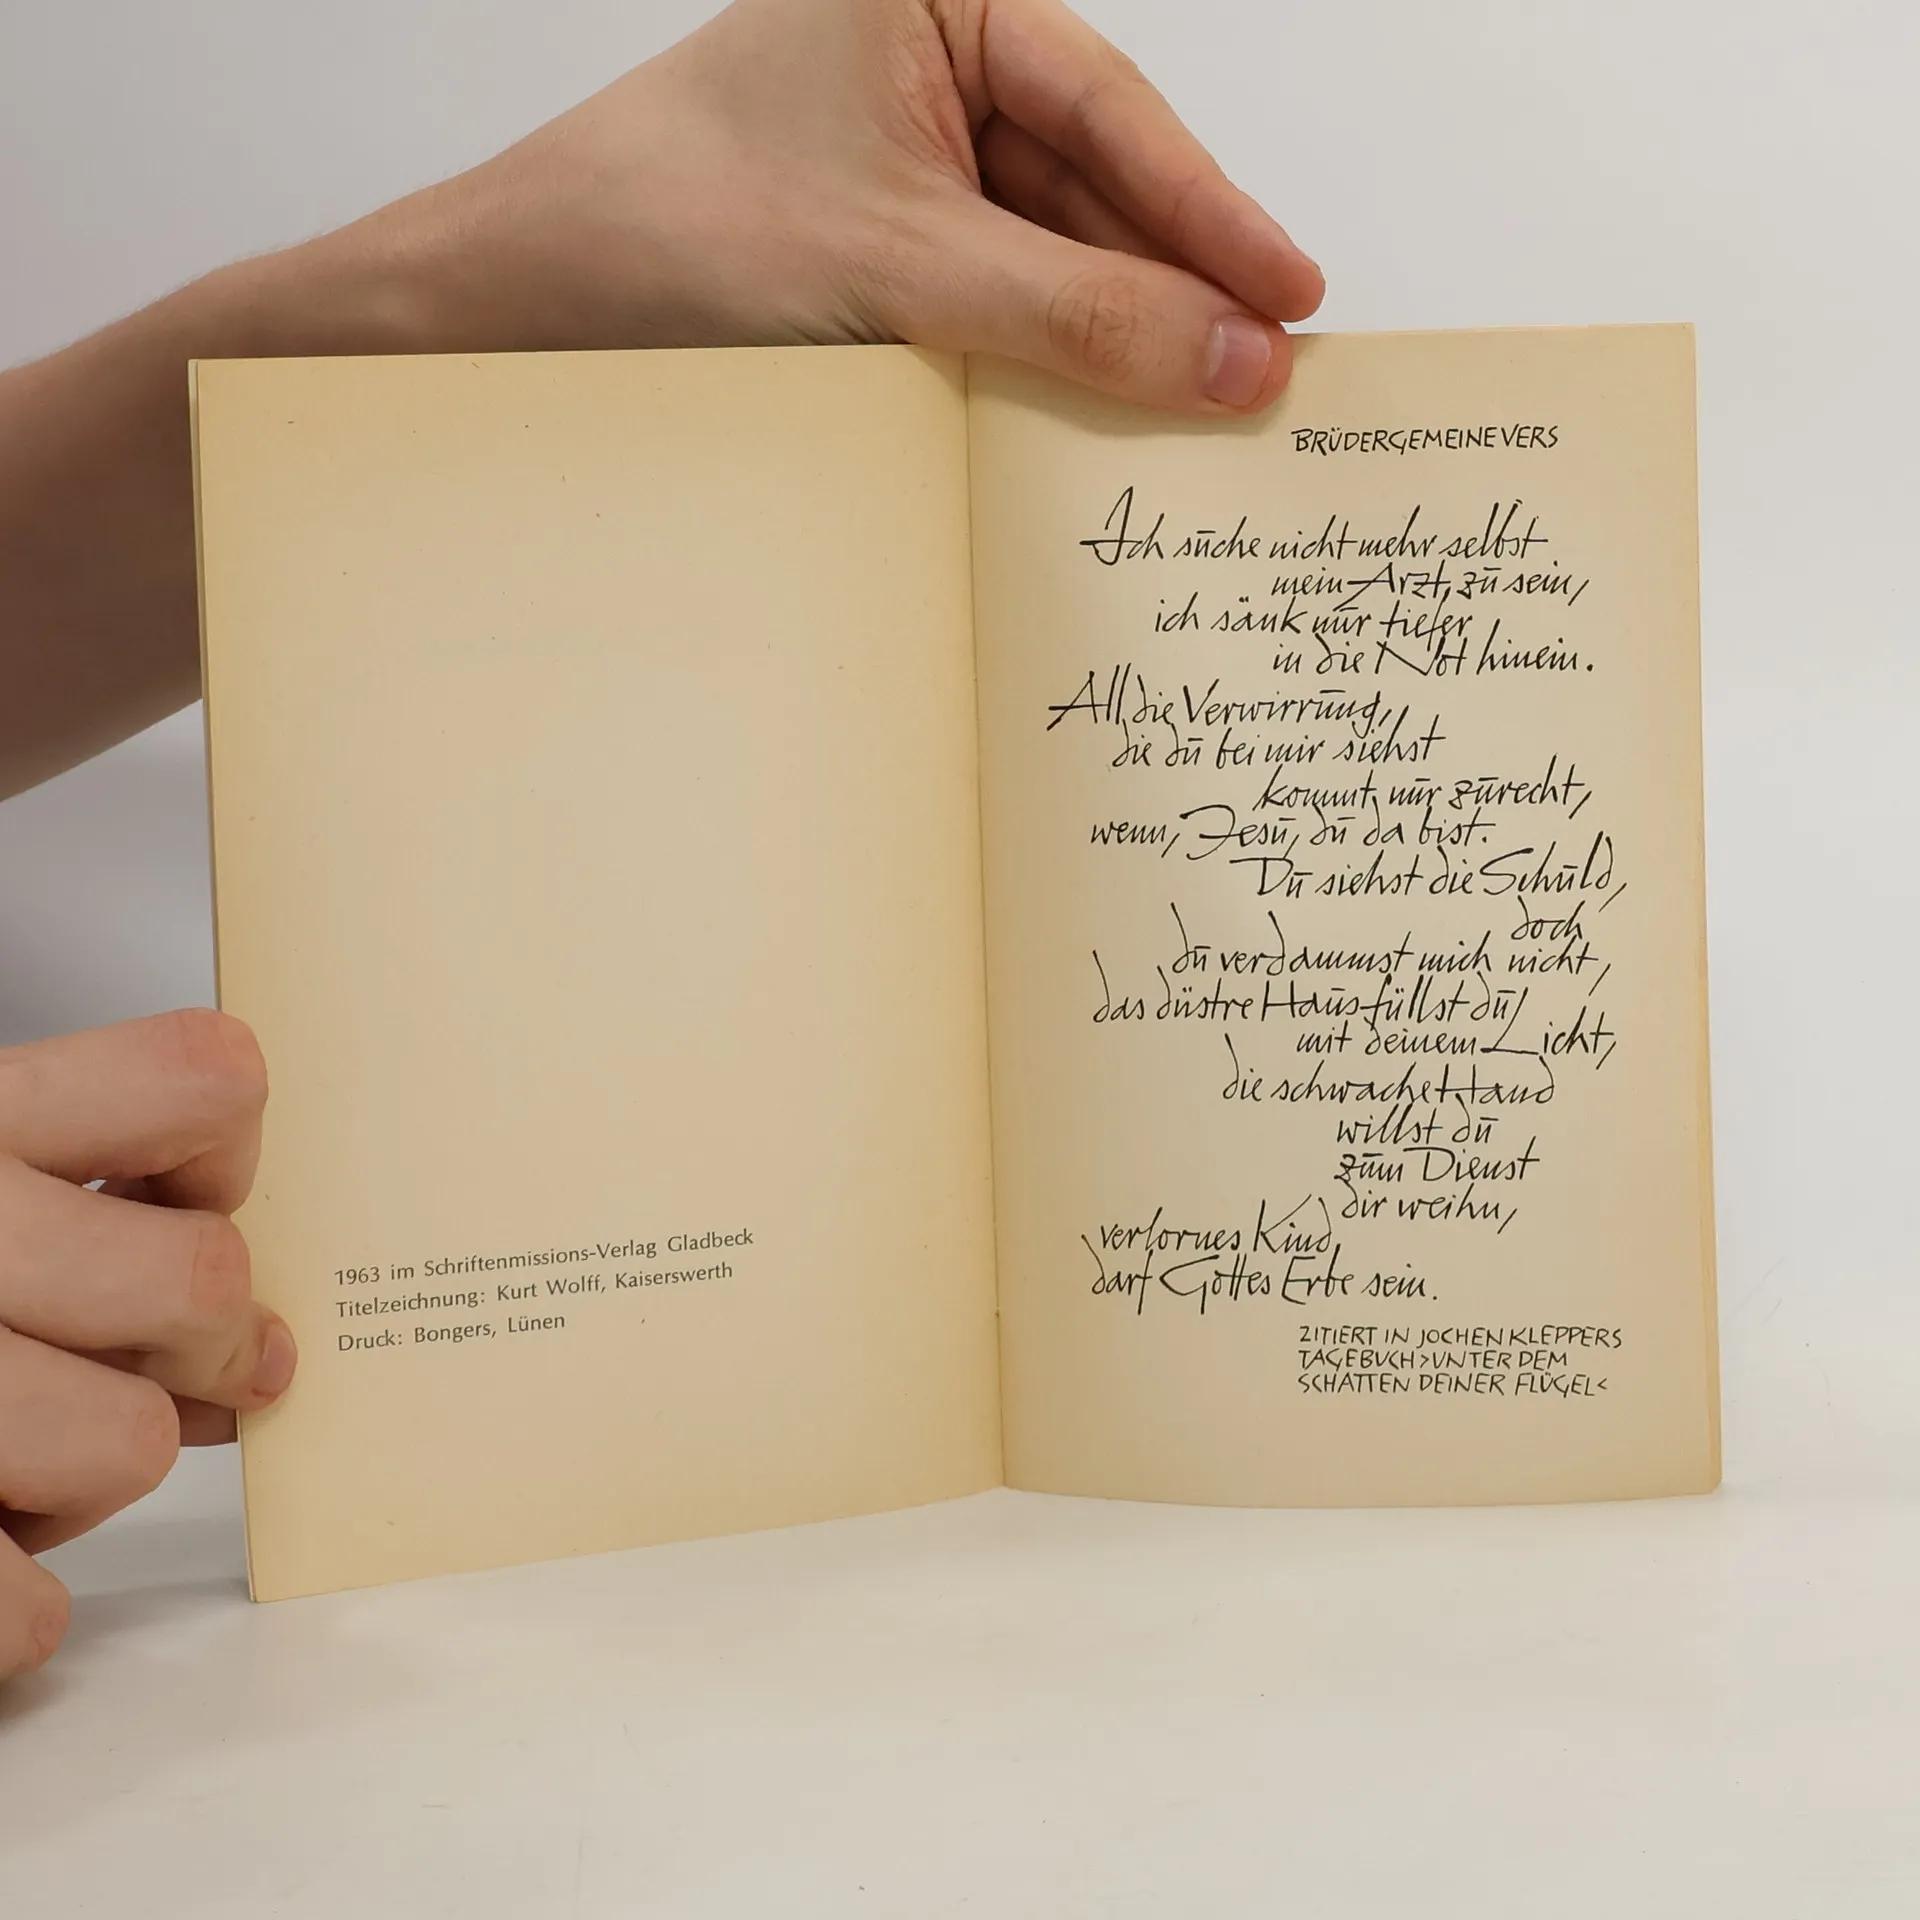 1963 im Schriftenmissions-Verlag Gladbeck
Titelzeichnung: Kurt Wolff, Kaiserswerth
Druck: Bongers, Lünen
BRÜDERGEMEINEVERS
Ich suche nicht mehr selbst
mein Arzt zu sein,
ich sänk nur tiefer
in die Not hinein.
All die Verwirrung,
die du bei mir siehst
kommt nur zurecht,
wenn, Jesu, du da bist.
Du siehst die Schuld,
doch
du verdammst mich nicht,
das düstre Haus füllst du
mit deinem Licht,
die schwache Hand
willst du
zum Dienst
dir weihn,
verlornes Kind
darf Gottes Erbe sein.
ZITIERT IN JOCHEN KLEPPERS
TAGEBUCH >UNTER DEM
SCHATTEN DEINER FLÜGEL<